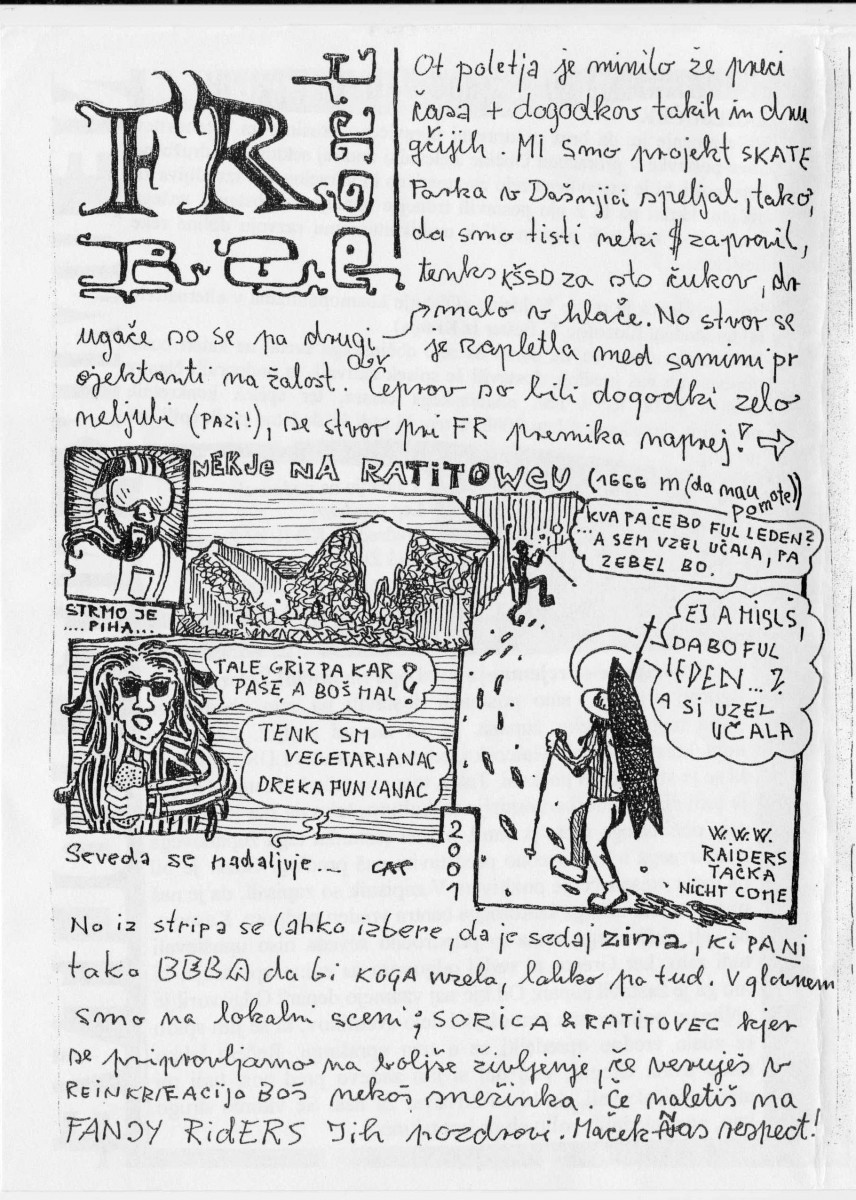 FR
Ot poletja je minilo že preci
časa + dogodkov takih in dru
gčijih. Mi smo projekt SKATE
Parka v Dašnjici speljal, tako,
da smo tisti neki $ zapravil,
tenks KŠSD za sto čukov, dr
ugače so se pa drugi malo v hlače. No stvor se
je zapletla med samimi pr
ojektanti na žalost. Čeprov so bili dogodki zelo
neljubi (PAZI!), se stvor pri FR premika naprej!
NEKJE NA RATITOWCU (1666 m (da nau pomote))
STRMO JE
....PIHA...
KVA PA ČE BO FUL LEDEN?
...A SEM VZEL UČALA, PA
ZEBEL BO.
EJ A MISLŠ,
DA BO FUL
LEDEN...?
A SI UZEL
UČALA
TALE GRIZ PA KAR
PAŠE, A BOŠ MAL?
TENK SM
VEGETARJANAC
DREKA PUN LANAC
W.W.W.
RAIDERS
TAČKA
NICHT COME
Seveda se nadaljuje... CAT
2001
No iz stripa se lahko izbere, da je sedaj zima, KI PA NI
tako BBBA da bi KOGA vzela, lahko pa tud. V glounem
smo na lokalni sceni ; SORICA & RATITOVEC kjer
se priprovljamo na boljše življenje, če veruješ v
REINKREACIJO BOŠ nekoš snežinka. Če naletiš na
FANJY RiDERS Jih pozdrovi. Maček Ñas respect!